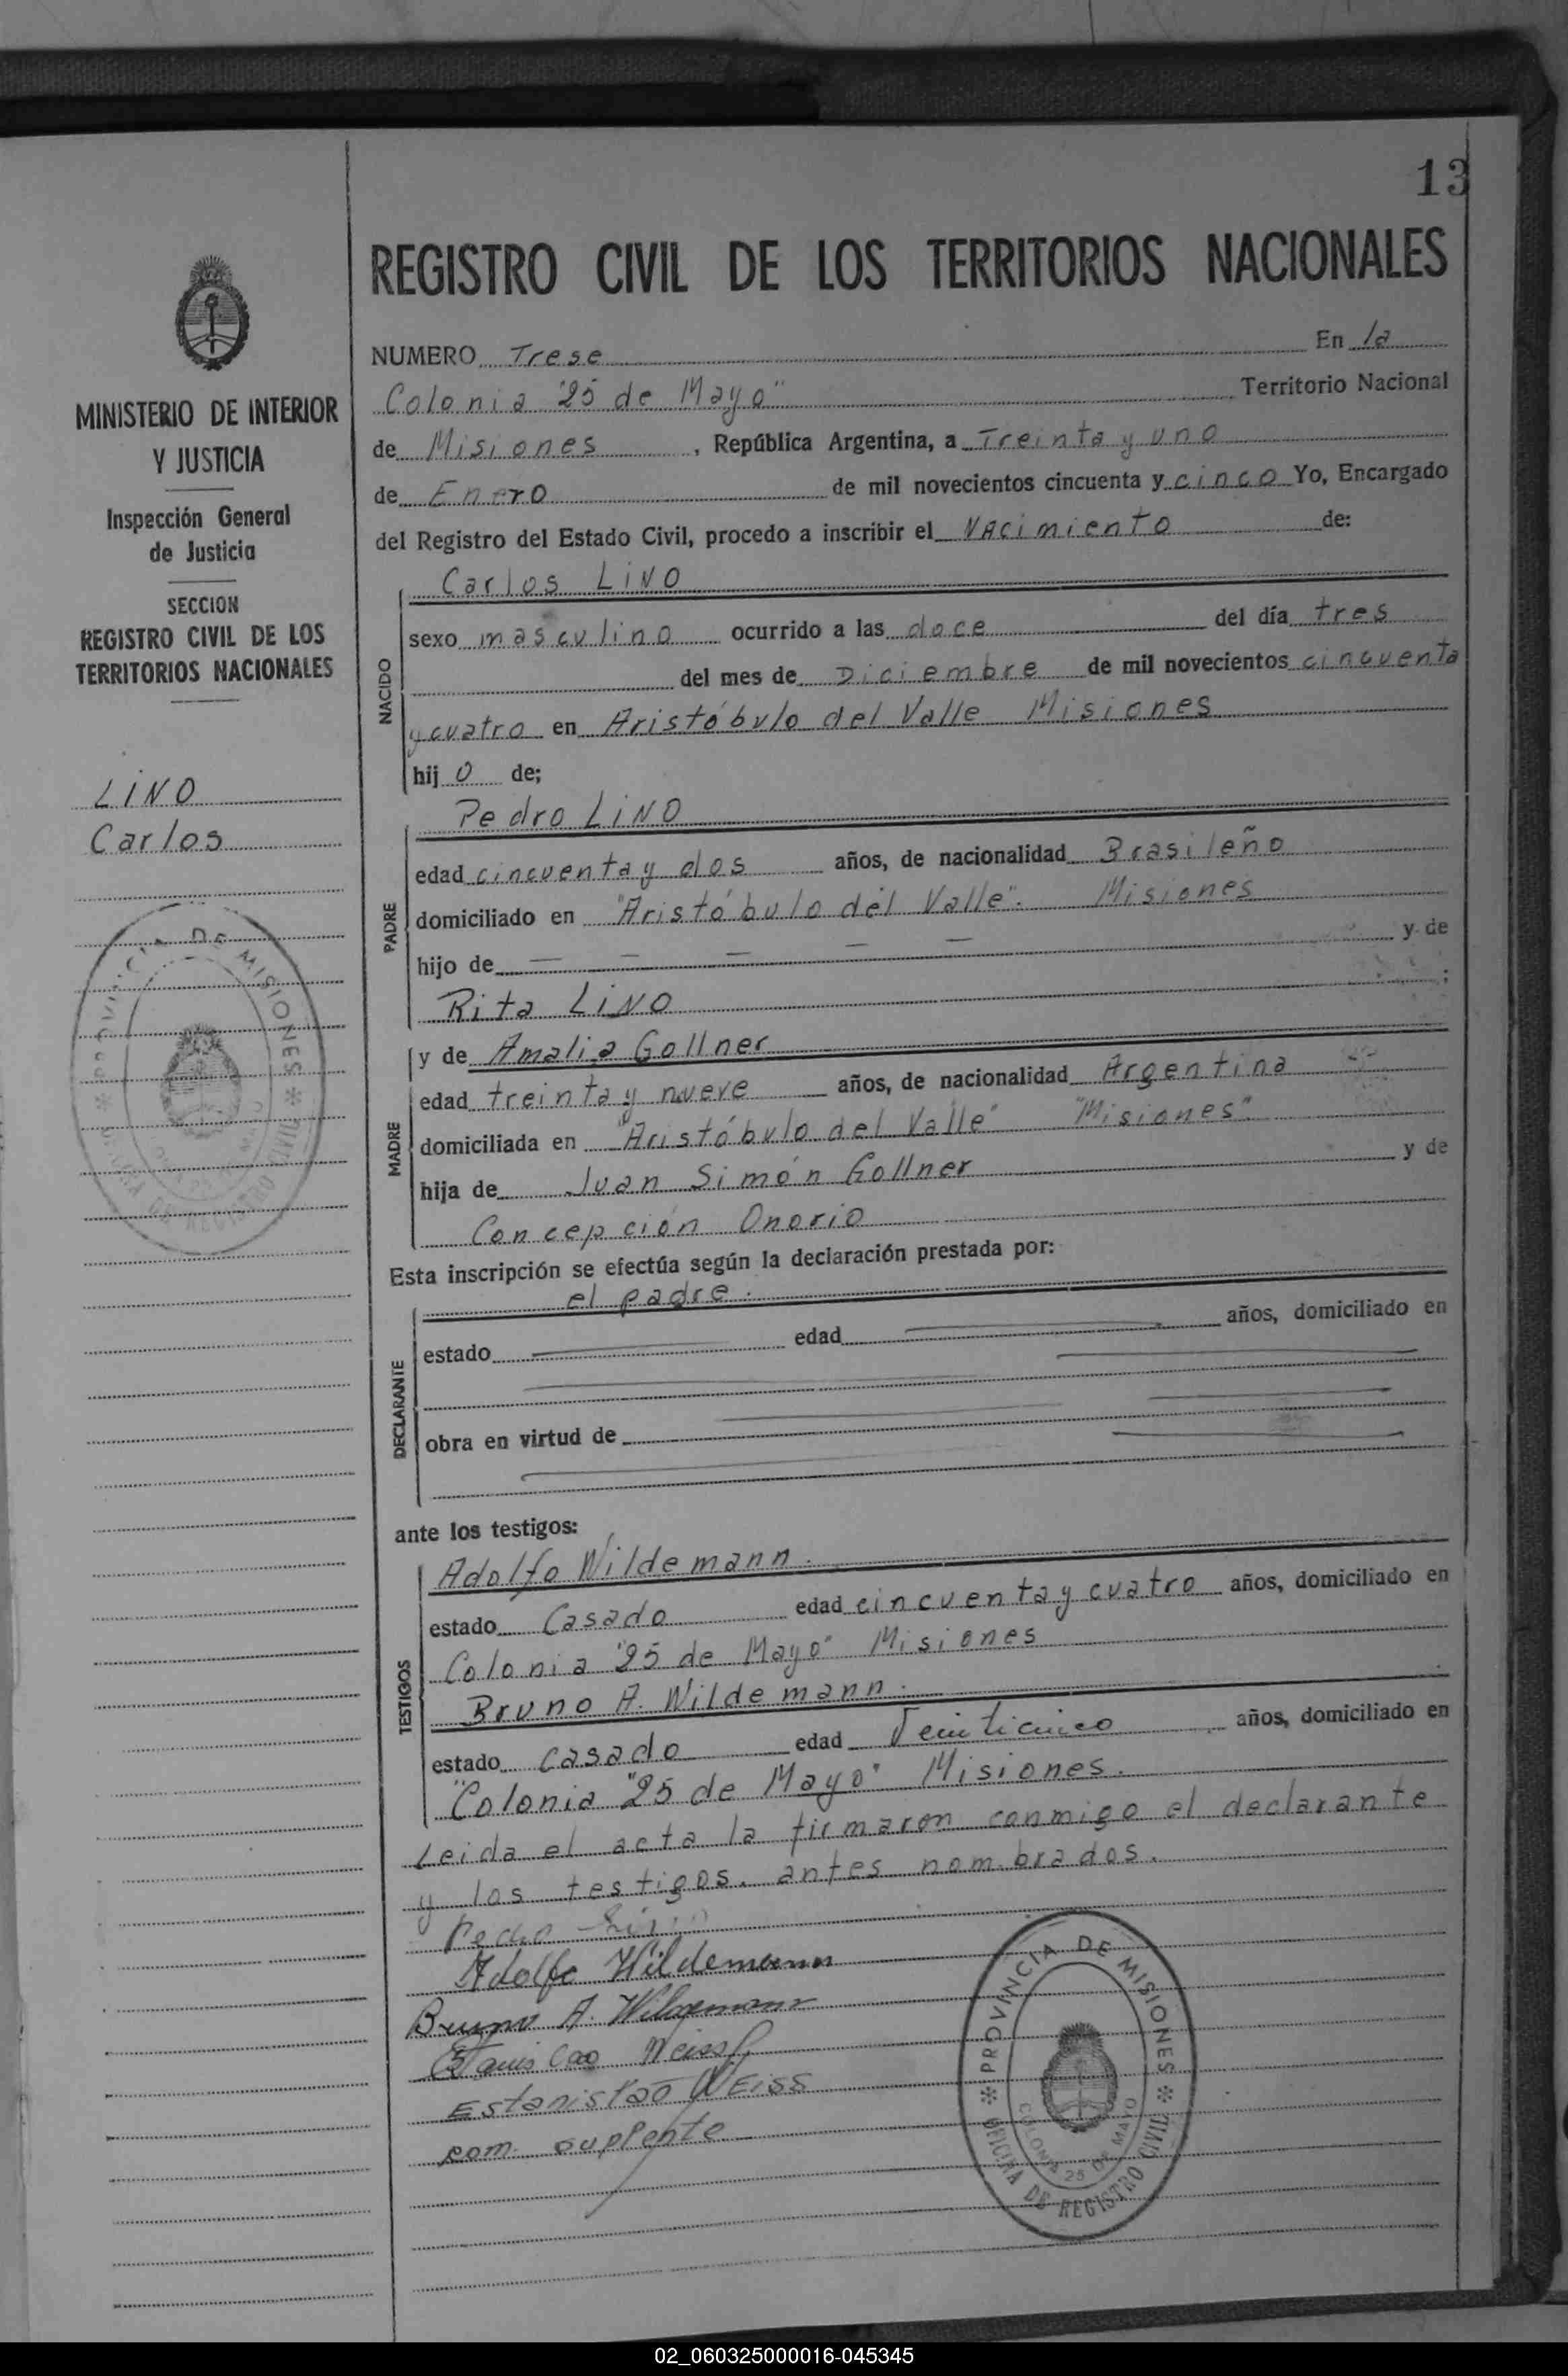 13
REGISTRO CIVIL DE LOS TERRITORIOS NACIONALES
MINISTERIO DE INTERIOR
Y JUSTICIA
Inspección General
de Justicia
SECCION
REGISTRO CIVIL DE LOS
TERRITORIOS NACIONALES
LINO
Carlos
PROVINCIA DE MISIONES
OFICINA DE REGISTRO CIVIL
NUMERO Trese En la
Colonia "25 de Mayo" Territorio Nacional
de Misiones, República Argentina, a Treinta y uno
de Enero de mil novecientos cincuenta y cinco Yo, Encargado
del Registro del Estado Civil, procedo a inscribir el Nacimiento de:
NACIDO
Carlos LINO
sexo masculino ocurrido a las doce del día tres
del mes de Diciembre de mil novecientos cincuenta
y cuatro en Aristóbulo del Valle Misiones
hij o de;
PADRE
Pedro LINO
edad cincuenta y dos años, de nacionalidad Brasileño
domiciliado en "Aristóbulo del Valle". Misiones
hijo de — — — — — y de
Rita LINO ;
MADRE
y de Amalia Gollner
edad treinta y nueve años, de nacionalidad Argentina
domiciliada en "Aristóbulo del Valle" "Misiones".
hija de Juan Simón Gollner y de
Concepción Onorio
Esta inscripción se efectúa según la declaración prestada por:
DECLARANTE
el padre.
estado edad años, domiciliado en
obra en virtud de
ante los testigos:
TESTIGOS
Adolfo Wildemann.
estado Casado edad cincuenta y cuatro años, domiciliado en
Colonia "25 de Mayo" Misiones
Bruno A. Wildemann.
estado casado edad años, domiciliado en
"Colonia "25 de Mayo" Misiones.
Leida el acta la firmaron conmigo el declarante
y los testigos. antes nombrados.
Pedro Lino
Adolfo Wildemann
Bruno A. Wildemann
Estanislao Weiss
Estanislao WEISS
suplente
PROVINCIA DE MISIONES
COLONIA 25 DE MAYO
OFICINA DE REGISTRO CIVIL
02_060325000016-045345